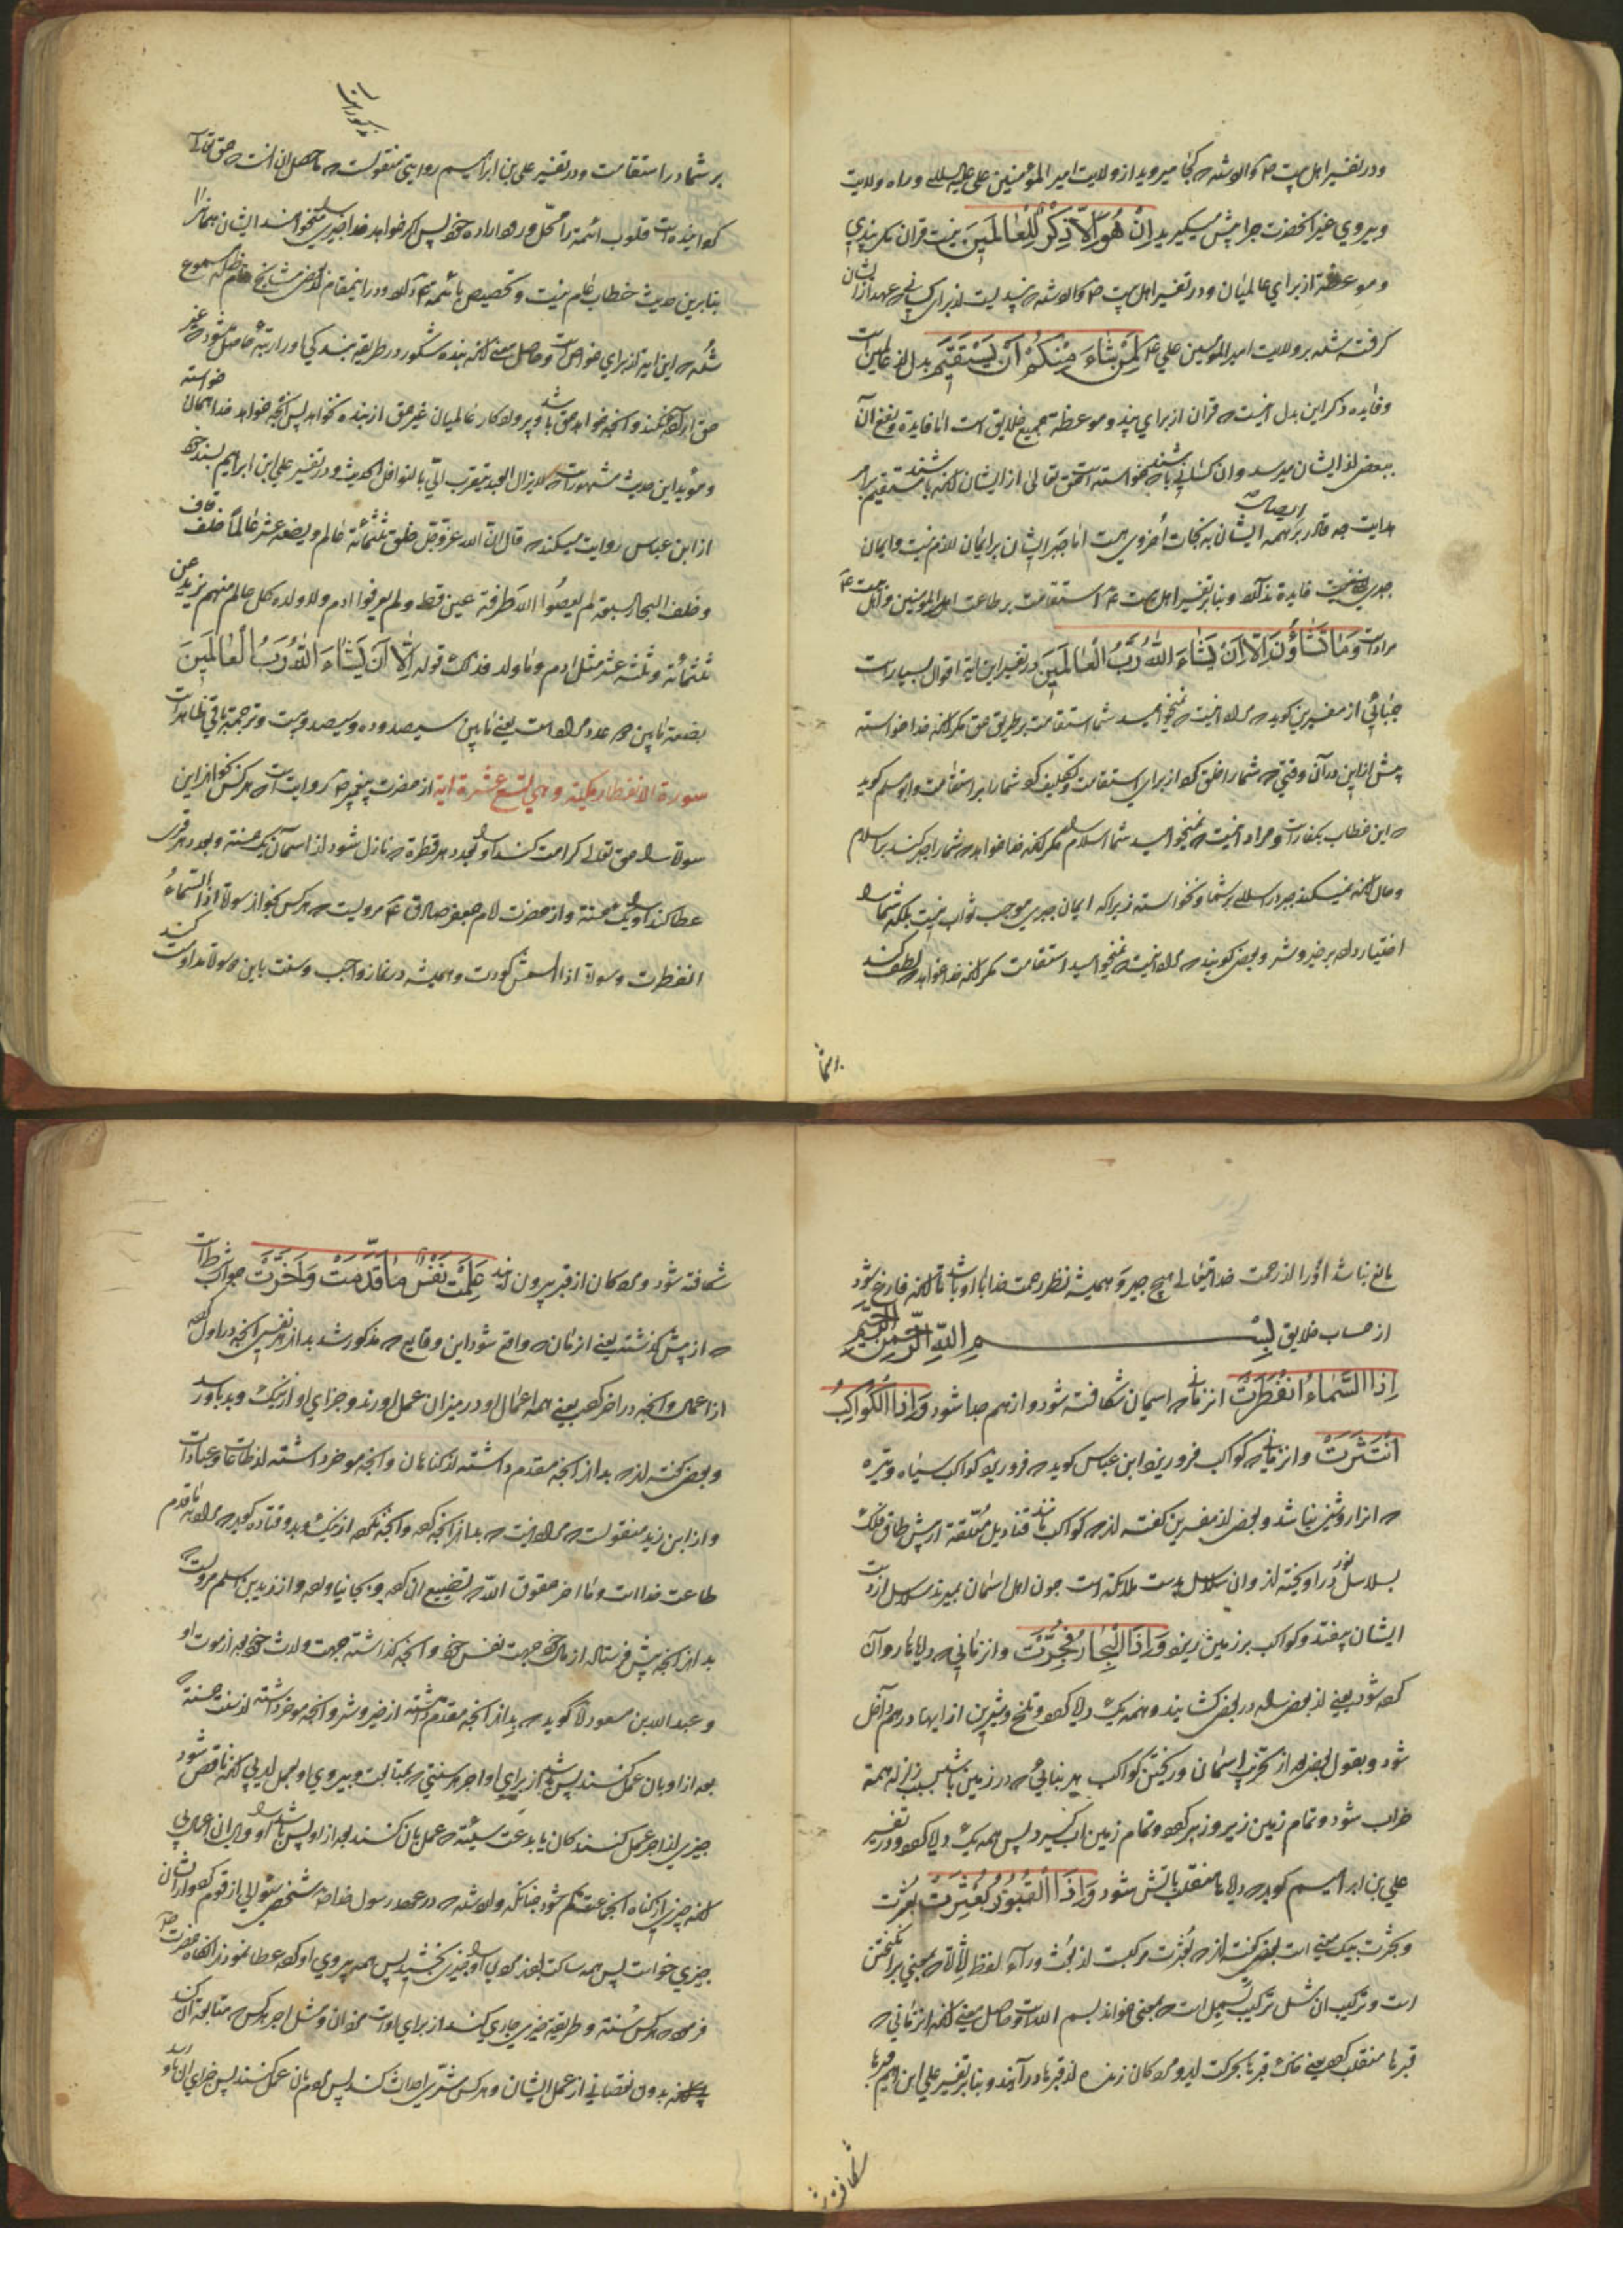 ودر تفسیر اهل بیت وارد شده که کجا میروید از ولایت امیر المؤمنین علی علیه السلام وراه ولایت
وپیروی غیر آنحضرت چرا پیش میگیرید اِنْ هُوَ اِلّا ذِکْرٌ لِلْعالَمینَ نیست قرآن مگر پندی
وموعظه از برای عالمیان ودر تفسیر اهل بیت وارد شده که پندیست از برای کسانی که عهد از ایشان
گرفته شده بر ولایت امیر المؤمنین علی لِمَنْ شاءَ مِنْکُمْ اَنْ یَسْتَقیمَ بدل از عالمین است
وفایده ذکر این بدل آنست که قرآن از برای پند وموعظه جمیع خلایق است امّا فایده ونفع آن
ببعضی از ایشان میرسد وآن کسانی باشند که خواسته است حق تعالی از ایشان آنکه مستقیم باشند
هدایت چه قادر بر همه ایشان به نجات اُخروی هست امّا جبر ایشان بر ایمان لازم نیست وایمان
جبری فایده ندارد وبنا بر تفسیر اهل بیت استقامت بر طاعت امیر المؤمنین
مراد است وَما تَشاؤُنَ اِلّا اَنْ یَشاءَ اللهُ رَبُّ الْعالَمینَ در تفسیر این آیة اقوال بسیار است
جبائی از مفسرین گوید که مراد آنست که نمیخواهید شما استقامت بر طریق حق مگر آنکه خدا خواسته
پیش از این در آن وقتی که شما را خلق کرد از برای استقامت وتکلیف کرد شما را بر استقامت وابو مسلم گوید
که این خطاب بکفار است ومراد آنست که نمیخواهید شما اسلام را مگر آنکه خدا خواهد که شما را جبر کند بر اسلام
وحال آنکه نمیکند جبر در اسلام بر شما ونخواسته زیرا که ایمان جبری موجب ثواب نیست بلکه شما را
اختیار داده بر خیر وشر وبعضی گویند که مراد آنست که نمیخواهید استقامت مگر آنکه خدا خواهد که لطف کند
بر شما
بر شما در استقامت ودر تفسیر علی بن ابراهیم روایتی منقولست که ماحصل آن آنست که حق تعالی
گردانیده است قلوب ائمة را محل ورود اراده خود پس اگر خواهد خدا چیزی را میخواهند ایشان همانرا
بنابرین حدیث خطاب عام نیست وتخصیص بائمه دارد ودر اینمقام از بعضی مشایخ مسموع
شده که این آیه از برای خواص است وحاصل معنی آنکه بنده شکور در طریقه بندگی او را رتبه حاصل میشود که غیر
حق اراده نکند وآنچه خواهد حق باشد وپروردگار عالمیان غیر حق از بنده نخواهد پس آنچه خواهد خدا همان خواسته
ومؤید این حدیث مشهور است لا یزال العبد یتقرب الیّ بالنوافل الحدیث ودر تفسیر علی ابن ابراهیم بسند خود
از ابن عباس روایت میکند که قال انّ الله عزّوجلّ خلق ثلثمائة عالم وبضعة عشر عالماً خلف قاف
وخلف البحار السبعة لم یعصوا الله طرفة عین قط ولم یعرفوا آدم ولا ولده کل عالم منهم یزید من
ثلثمائة وثلثة عشر مثل آدم وما ولد فذلک قوله اِلّا اَنْ یَشاءَ اللهُ رَبُّ الْعالَمینَ
سورة الانفطار مکیة وهی تسع عشرة آیة از حضرت پیغمبر روایت است که هرکس بخواند این
سوره را حق تعالی کرامت کند او را بعدد هر قطره که نازل شود از آسمان یک حسنة وبعدد هر قبری
عطا کند او را یک حسنة واز حضرت امام جعفر صادق مرویست که هرکس بخواند سوره اذا السماء
انفطرت وسوره اذا الشمس کورت وهمیشه در نماز واجب وسنت باین دو سوره مداومت کند
مانع نباشد او را از رحمت خدایتعالی هیچ چیز وهمیشه نظر رحمت خدا با او باشد تا آنکه فارغ شود
از حساب خلایق بِسْمِ اللهِ الرَّحْمنِ الرَّحیمِ
اِذَا السَّماءُ انْفَطَرَتْ آنزمانی که آسمان شکافته شود واز هم جدا شود وَاِذَا الْکَواکِبُ
انْتَثَرَتْ وآنزمانی که کواکب فرو ریزد ابن عباس گوید که فرو ریزد کواکب سیاه وتیره
که آنرا روشنی نباشد وبعضی از مفسرین گفته‌اند که کواکب مانند قنادیل معلّقة از پیش طاق فلک
بسلاسل نور در آویخته‌اند وآن سلاسل بدست ملائکه است چون اهل آسمان بمیرند سلاسل از دست
ایشان بیفتد وکواکب بر زمین ریزد وَاِذَا الْبِحارُ فُجِّرَتْ وآنزمانی که دریاها روان
کرده شود یعنی از بعضی راه در بعضی گشایند وهمه یک دریا گردد وتلخ وشیرین از آبها در هم داخل
شود وبقول بعضی بعد از تخریب آسمان وریختن کواکب هر بنائی که در زمین باشد بسبب زلزله همه
خراب شود وتمام زمین زیر وزبر گردد وتمام زمین آب گیرد پس همه یک دریا گردد ودر تفسیر
علی بن ابراهیم گوید که دریاها منقلب بآتش شود وَاِذَا الْقُبُورُ بُعْثِرَتْ بعثرت
وبحثرت بیک معنی است بعضی گفته‌اند که بعثرت مرکبست از بعث وراء
است وترکیب آن مثل ترکیب بسمل است که بمعنی خواند بسم الله است وحاصل معنی آنکه آنزمانی که
قبرها منقلب گردد یعنی خاک قبرها بحرکت آید ومردگان زنده از قبرها درآیند وبنا بر تفسیر علی ابن ابراهیم قبرها
شکافته شود
شکافته شود ومردگان از قبر بیرون آیند عَلِمَتْ نَفْسٌ ما قَدَّمَتْ وَاَخَّرَتْ جواب شرط است
که از پیش گذشته یعنی آنزمان که واقع شود این وقایع که مذکور شد بداند هر نفسی آنچه در اول کرده
از اعمال وآنچه در آخر کرده یعنی همه اعمال او در میزان عمل آورند وجزای او از نیک وبد باو رسد
وبعضی گفته‌اند که بداند آنچه مقدم داشته از گناهان وآنچه موخر داشته از طاعات وعبادات
واز ابن زید منقولست که مراد آنست که بداند آنچه کرده وآنچه نکرده از نیک وبد وقتاده گوید که مراد بما قدم
طاعت خداست وما اخر حقوق الله که تضییع آن کرده وبجا نیاورده واز زید بن اسلم مرویست که
بداند آنچه پیش فرستاده از مال خود جهت نفس خود وآنچه گذاشته جهت وارث خود بعد از موت او
وعبد الله بن مسعود گوید که بداند آنچه مقدم داشته از خیر وشر وآنچه موخر داشته از سنت حسنة که
بعد از او بآن عمل کنند پس باشد از برای او اجر هر سنتی که بمتابعت وپیروی او بعمل آید بی آنکه ناقص شود
چیزی از اجر عمل کنندگان یا بدعت سیئه که عمل بآن کنند بعد از او پس باشد او را وبال آن اعمال بی
آنکه چیزی از گناه آنجماعت کم شود چنانکه وارد شده که در عهد رسول خدا شخصی سؤالی از قوم کرد واز ایشان
چیزی خواست پس همه ساکت بودند مردی او را چیزی بخشید پس همه پیروی او کرده عطا نمودند آنگاه حضرت
فرمود که هرکس سُنّة وطریقه خیری جاری کند از برای اوست مزد آن ومثل اجر هرکس که متابعت آن کند
بدون نقصانی از عمل ایشان وهرکس شرّی احداث کند پس مردم بآن عمل کنند پس جزای آن باو رسد